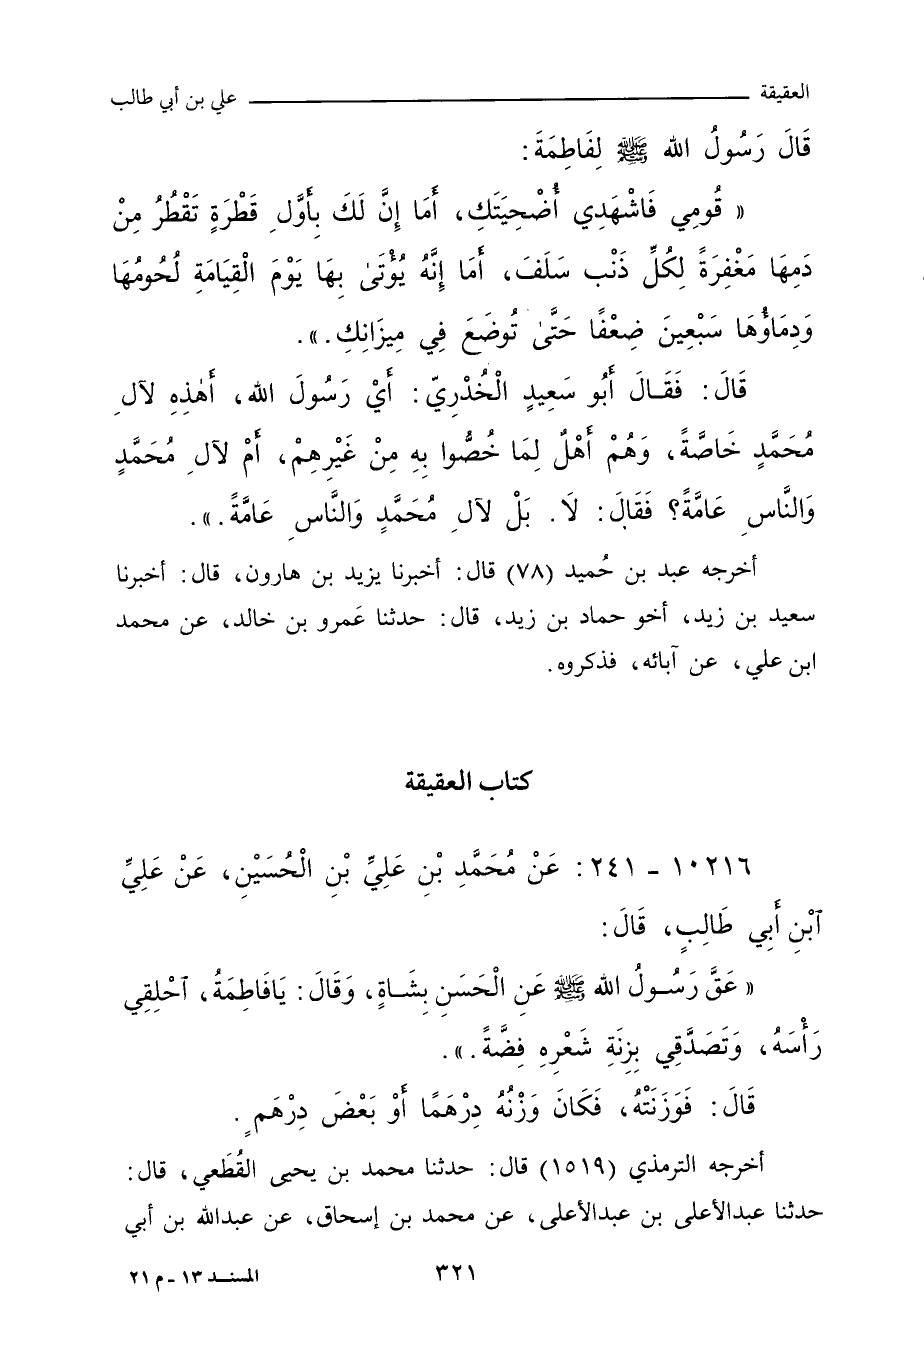 العقيقة ــــــــــــــــــــــــــــــــــــــــ علي بن أبي طالب
قَالَ رَسُولُ الله ﷺ لِفَاطِمَةَ:
« قُومِي فَاشْهَدِي أُضْحِيَتَكِ، أَمَا إِنَّ لَكَ بِأَوَّلِ قَطْرَةٍ تَقْطُرُ مِنْ
دَمِهَا مَغْفِرَةً لِكُلِّ ذَنْبٍ سَلَفَ، أَمَا إِنَّهُ يُؤْتَىٰ بِهَا يَوْمَ الْقِيَامَةِ لُحُومُهَا
وَدِمَاؤُهَا سَبْعِينَ ضِعْفًا حَتَّىٰ تُوضَعَ فِي مِيزَانِكِ.».
قَالَ: فَقَالَ أَبُو سَعِيدٍ الْخُدْرِيّ: أَيْ رَسُولَ الله، أَهٰذِهِ لآلِ
مُحَمَّدٍ خَاصَّةً، وَهُمْ أَهْلٌ لِمَا خُصُّوا بِهِ مِنْ غَيْرِهِمْ، أَمْ لآلِ مُحَمَّدٍ
وَالنَّاسِ عَامَّةً؟ فَقَالَ: لَا. بَلْ لآلِ مُحَمَّدٍ وَالنَّاسِ عَامَّةً.».
أخرجه عبد بن حُميد (٧٨) قال: أخبرنا يزيد بن هارون، قال: أخبرنا
سعيد بن زيد، أخو حماد بن زيد، قال: حدثنا عَمرو بن خالد، عن محمد
ابن علي، عن آبائه، فذكروه.
كتاب العقيقة
١٠٢١٦ - ٢٤١: عَنْ مُحَمَّدِ بْنِ عَلِيِّ بْنِ الْحُسَيْنِ، عَنْ عَلِيِّ
ٱبْنِ أَبِي طَالِبٍ، قَالَ:
« عَقَّ رَسُولُ الله ﷺ عَنِ الْحَسَنِ بِشَاةٍ، وَقَالَ: يَافَاطِمَةُ، ٱحْلِقِي
رَأْسَهُ، وَتَصَدَّقِي بِزِنَةِ شَعْرِهِ فِضَّةً.».
قَالَ: فَوَزَنَتْهُ، فَكَانَ وَزْنُهُ دِرْهَمًا أَوْ بَعْضَ دِرْهَمٍ.
أخرجه الترمذي (١٥١٩) قال: حدثنا محمد بن يحيى القُطَعي، قال:
حدثنا عبدالأعلى بن عبدالأعلى، عن محمد بن إسحاق، عن عبدالله بن أبي
٣٢١ المسند ١٣ - م ٢١